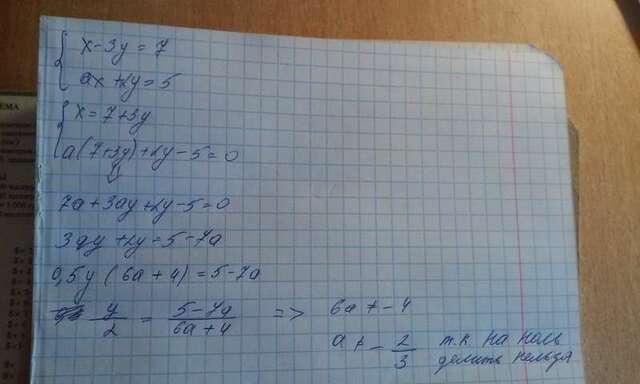 { x-3y=7
ax+2y=5
{ x=7+3y
a(7+3y)+2y-5=0
7a+3ay+2y-5=0
3ay+2y=5-7a
0,5y(6a+4)=5-7a
y/2 = 5-7a/6a+4 => 6a≠-4
a≠-2/3 т.к на ноль
делить нельзя